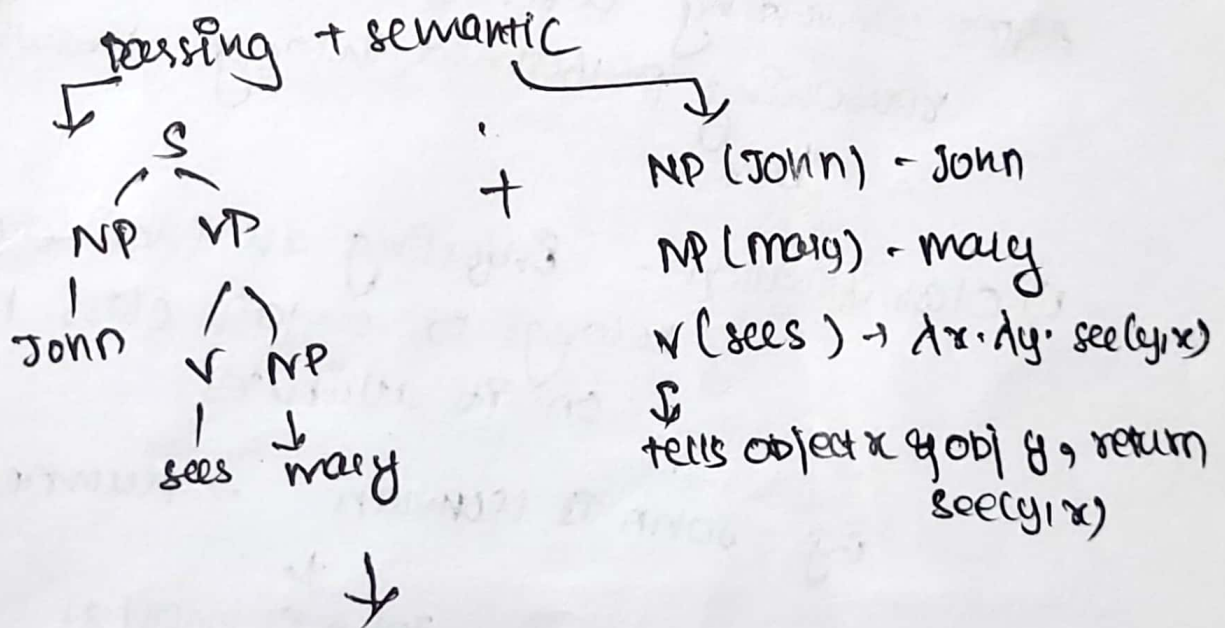 parsing + semantic
S
NP VP
John
V NP
sees mary
+
NP (John) - John
NP (mary) - mary
V (sees) → λx. λy. see(y,x)
tells object x & obj y, return
see(y, x)